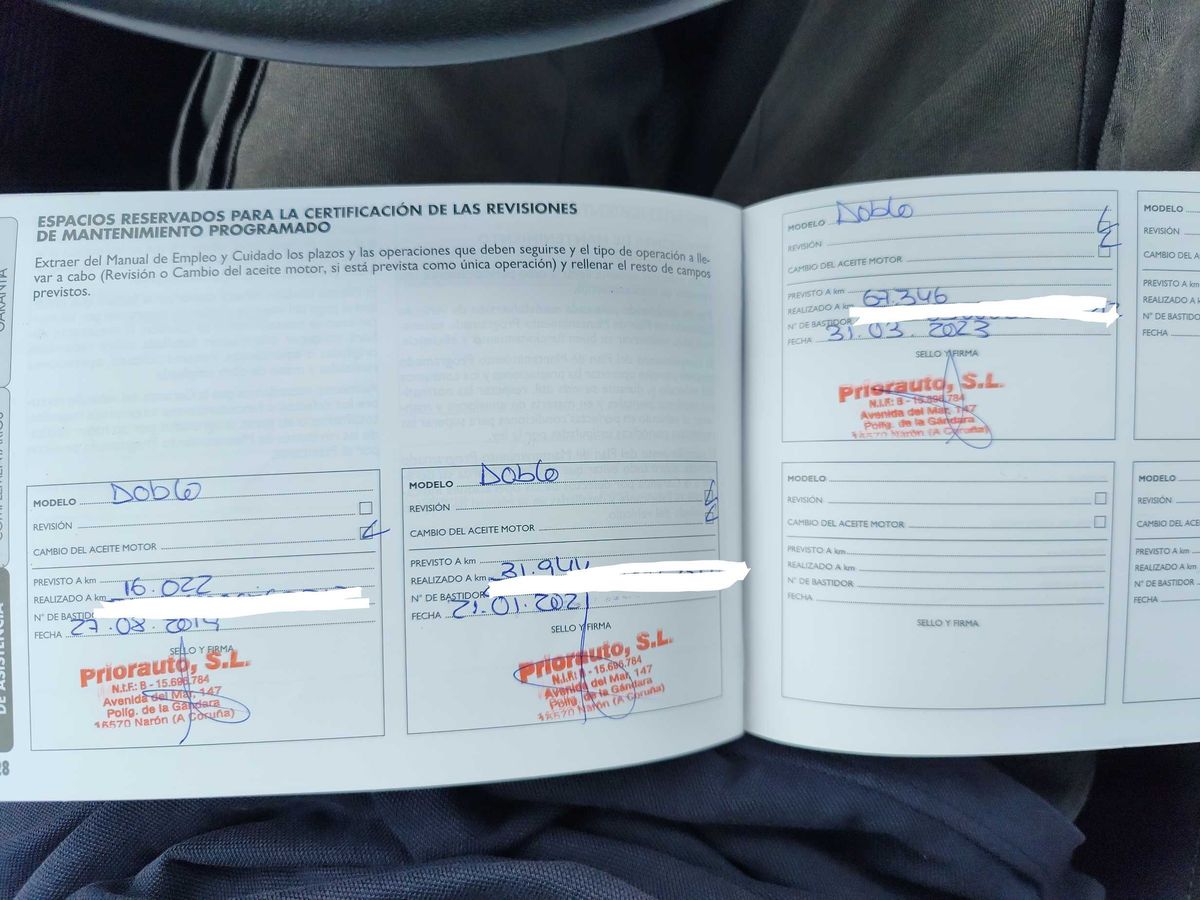 ESPACIOS RESERVADOS PARA LA CERTIFICACIÓN DE LAS REVISIONES
DE MANTENIMIENTO PROGRAMADO
Extraer del Manual de Empleo y Cuidado los plazos y las operaciones que deben seguirse y el tipo de operación a lle-
var a cabo (Revisión o Cambio del aceite motor, si está prevista como única operación) y rellenar el resto de campos
previstos.
MODELO Doblo
REVISIÓN
CAMBIO DEL ACEITE MOTOR
PREVISTO A km
REALIZADO A km 16.022
N° DE BASTIDO
FECHA 27.08.2019
SELLO Y FIRMA
Priorauto, S.L.
N.I.F.: B - 15.696.784
Avenida del Mar, 147
Políg. de la Gándara
15570 Narón (A Coruña)
MODELO Doblo
REVISIÓN
CAMBIO DEL ACEITE MOTOR
PREVISTO A km
REALIZADO A km 31.944
N° DE BASTIDOR
FECHA 21.01.2021
SELLO Y FIRMA
Priorauto, S.L.
N.I.F.: B - 15.696.784
Avenida del Mar, 147
Políg. de la Gándara
15570 Narón (A Coruña)
MODELO Doblo
REVISIÓN
CAMBIO DEL ACEITE MOTOR
PREVISTO A km
REALIZADO A km 67.346
N° DE BASTIDOR
FECHA 31.03.2023
SELLO Y FIRMA
Priorauto, S.L.
N.I.F.: B - 15.696.784
Avenida del Mar, 147
Políg. de la Gándara
15570 Narón (A Coruña)
MODELO
REVISIÓN
CAMBIO DEL ACEITE MOTOR
PREVISTO A km
REALIZADO A km
N° DE BASTIDOR
FECHA
SELLO Y FIRMA
MODELO
REVISIÓN
CAMBIO DEL A
PREVISTO A km
REALIZADO A k
N° DE BASTIDO
FECHA
MODELO
REVISIÓN
CAMBIO DEL ACE
PREVISTO A km
REALIZADO A km
N° DE BASTIDOR
FECHA
GARANTÍA
COMPLEMENTARIOS
DE ASISTENCIA
28